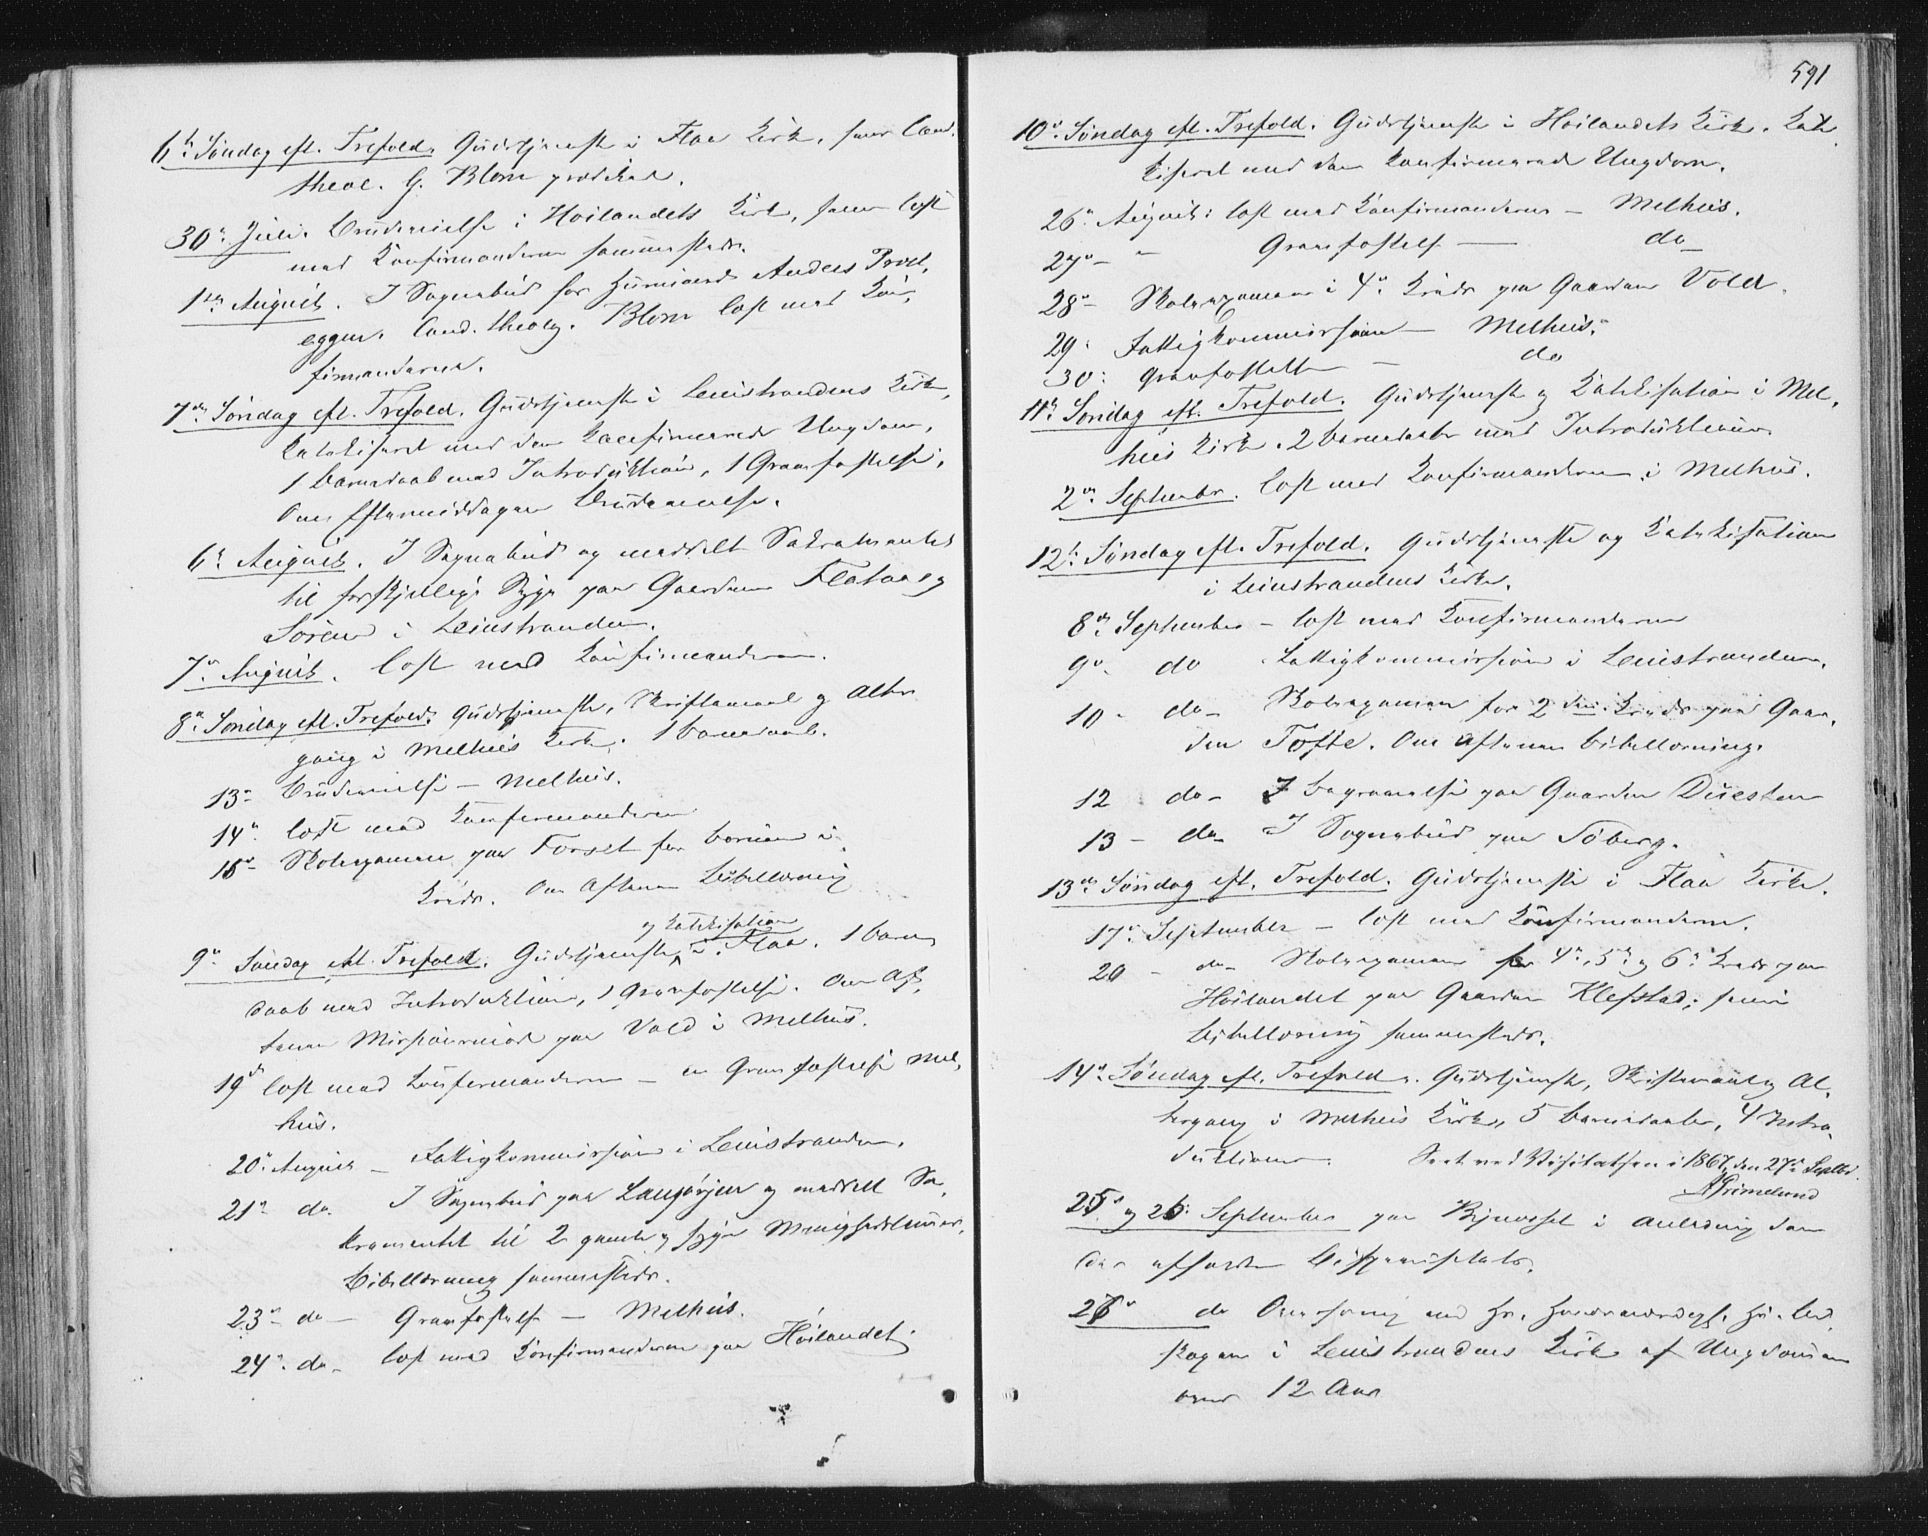 6te Søndag eft. Trefold. Gudstjeneste i Flaa Kirke, hvor Cand.
theol. G. Blom prædikede.
30te Juli. Brudevielse i Høilandets Kirke, samt læst
med Konfirmanderne sammesteds.
1ste August. I Sognebud for Huusmand Anders Prest,
eggen. Cand. theolog. Blom læst med Kon,
firmanderne.
7de Søndag eft. Trefold. Gudstjeneste i Leinstrandens Kirke,
katekiseret med den konfirmerede Ungdom,
1 Barnedaab med Introduktion, 1 Gravfæstelse.
Om Eftermiddagen Brudevielse.
6te August. I Sognebud og meddelt Sakramentet
til forskjellige Syge paa Gaardene Flataas og
Søreem i Leinstranden.
7de August. Læst med Konfirmanderne.
8de Søndag eft. Trefold. Gudstjeneste, Skriftemaal og Alter
gang i Melhus Kirke. 1 Barnedaab.
13de Brudevielse – Melhus.
14de læst med Konfirmanderne
15de Skoleexamen paa Forset for Børnene i
Kreds. Om Aftenen Bibellæsning
og Katekisation
9de Søndag eft. Trefold. Gudstjeneste i Flaa. 1 Barne
daab med Introduktion, 1 Gravfæstelse. Om Af,
tenen Missionsmøde paa Vold i Melhus.
19de læst med Konfirmanderne – en Gravfæstelse Mel,
hus.
20de August – Fattigkommission i Leinstranden.
21de do. I Sognebud paa Langørjen og meddelt Sa,
kramentet til 2 gamle og syge Menighedslemmer,
Bibellæsning sammesteds.
23de do – Gravfæstelse – Melhus.
24de do – læst med Konfirmanderne paa Høilandet.
591
10de Søndag eft. Trefold. Gudstjeneste i Høilandets Kirke. Kate
kiseret med den konfirmerede Ungdom.
26de August: læst med Konfirmanderne – Melhus.
27de – " Gravfæstelse – do
28de – Skoleexamen i 4de Kreds paa Gaarden Vold.
29. Fattigkommission – Melhus.
30. Gravfæstelse – do
11te Søndag eft. Trefold. Gudstjeneste og Katekisation i Mel,
hus Kirke. 2 Barnedaabe med Introduktioner.
2den September. læst med Konfirmanderne i Melhus.
12te Søndag eft. Trefold. Gudstjeneste og Katekisation
i Leinstrandens Kirke.
8de September – læst med Konfirmanderne
9de do Fattigkommission i Leinstranden.
10 – do – Skoleexamen for 2den Kreds paa Gaar,
den Tofte. Om Aftenen Bibellæsning.
12 do – I Begravelse paa Gaarden Duesten
13 – do – I Sognebud paa Søberg.
13de Søndag eft. Trefold. Gudstjeneste i Flaa Kirke.
17de September – læst med Konfirmanderne.
20 – do – Skoleexamen for 4de, 5te og 6te Kreds paa
Høilandet paa Gaarden Klefstad; samt
Bibellæsning sammesteds.
14de Søndag eft. Trefold. Gudstjeneste, Skriftemaal og Al,
tergang i Melhus Kirke, 5 Barnedaabe, 4 Intro,
duktioner. Seet ved Visitatsen i 1867, den 27de Septbr.
AGrimelund
25de og 26de September paa Bynesset i Anledning den
der afholdte Bispevisitats.
27de do Overhøring ved Hr. Høiærværdige Hr. Bi,
skopen i Leinstrandens Kirke af Ungdommen
over 12 Aar